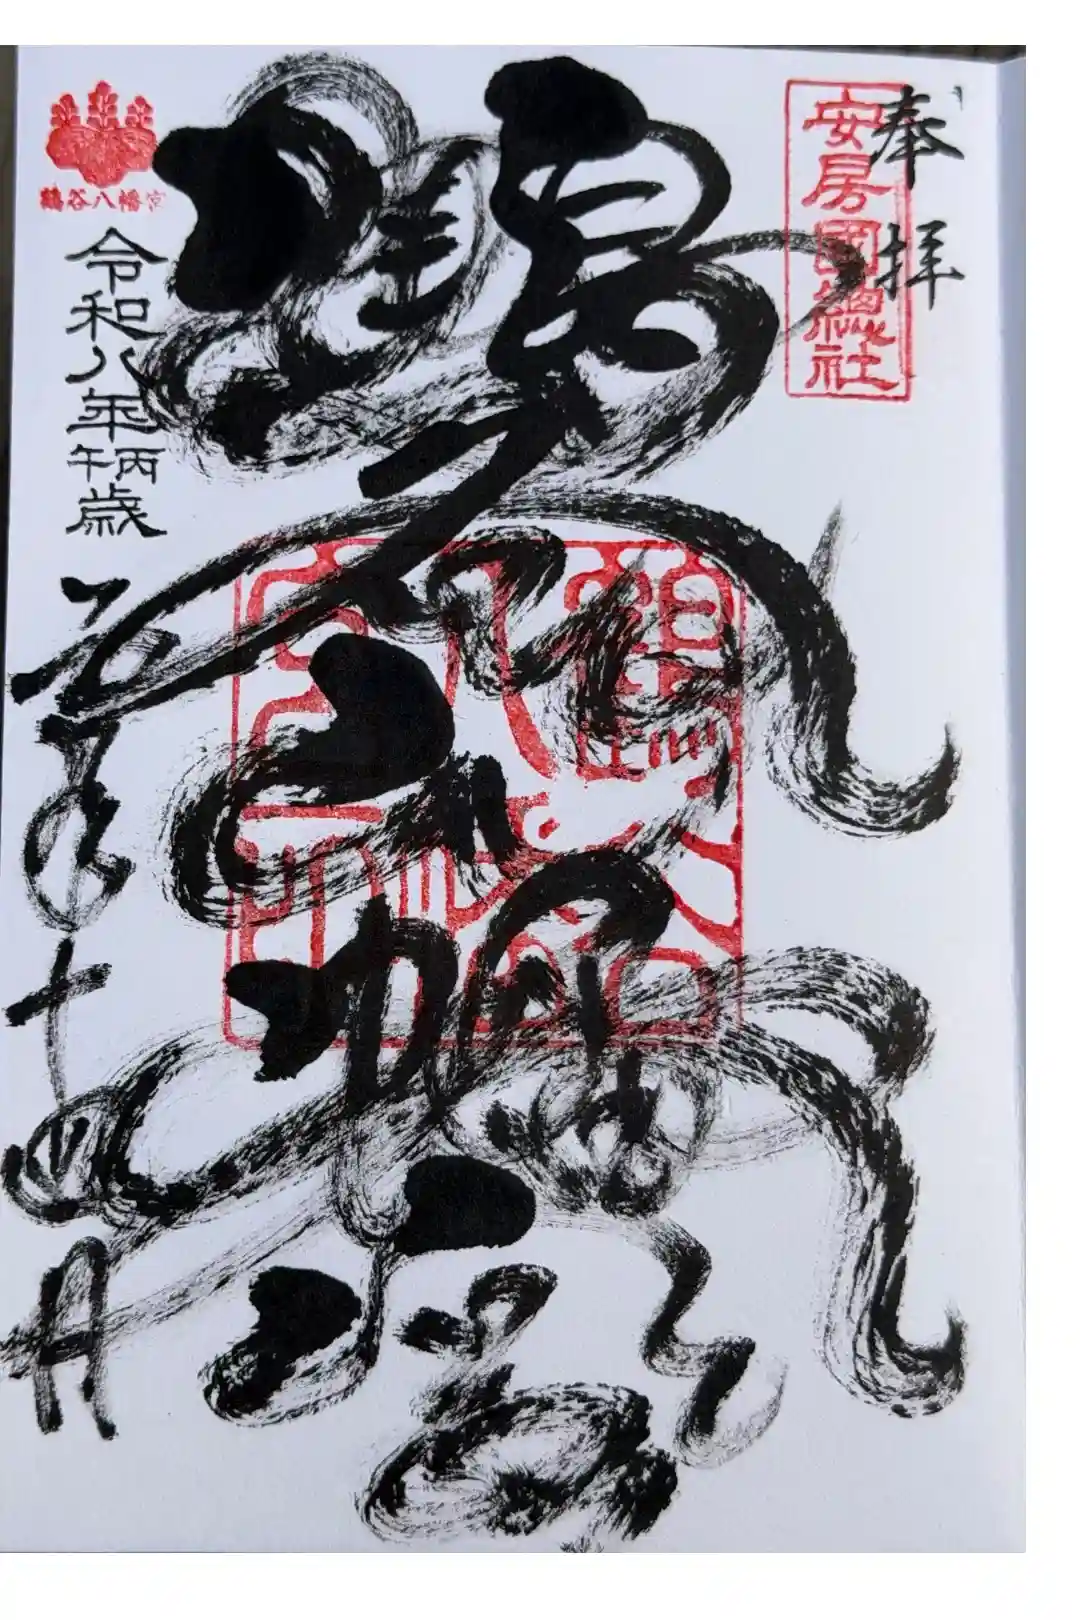 奉拝
安房國總社
鶴谷八幡宮
鶴谷八幡宮
令和八年丙午歳
二月十四日